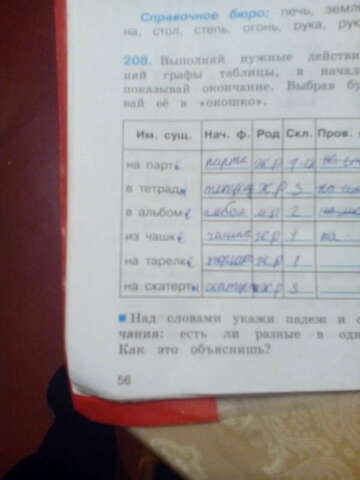 Справочное бюро: печь, земл
на, стол, степь, огонь, рука, рук
208. Выполняй нужные действи
ний графы таблицы, в начал
показывай окончание. Выбрав бу
вай её в «окошко».
Им. сущ. Нач. ф. Род Скл. Пров.
на парте парта ж р 1
в тетради тетрадь ж р 3
в альбоме альбом м р 2
из чашки чашка ж р 1 на
на тарелке ж р 1
на скатерти ж р 3
Над словами укажи падеж и
чания: есть ли разные в одн
Как это объяснишь?
56